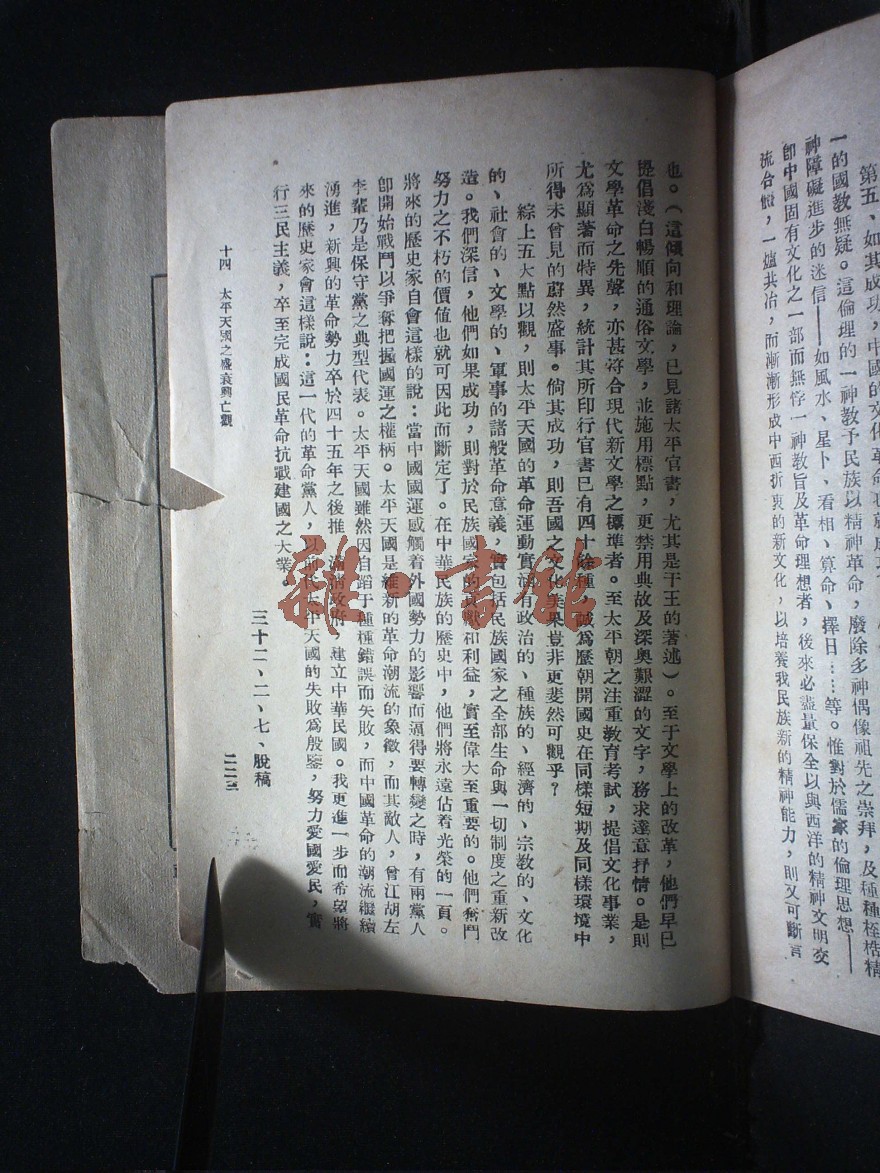 第五、如其成功,中國的文化革命也就成
一的國教無疑。這倫理的一神教予民族以精神革命,廢除多神偶像祖先之崇拜,及種種桎梏精
神障礙進步的迷信——如風水、星卜、看相、算命、擇日……等。惟對於儒家的倫理思想——
卽中國固有文化之一部而無悖一神教旨及革命理想者,後來必盡量保全以與西洋的精神文明交
流合體,一爐共冶,而漸漸形成中西折衷的新文化,以培養我民族新的精神能力,則又可斷言
也。(這傾向和理論,已見諸太平官書,尤其是干王的著述)。至于文學上的改革,他們早已
提倡淺白暢順的通俗文學,並施用標點,更禁用典故及深奧艱澀的文字,務求達意抒情。是則
文學革命之先聲,亦甚符合現代新文學之準者。至太平朝之注重教育考試,提倡文化事業,
尤爲顯著而特異,統計其所印行官書已有四十餘種,誠爲歷朝開國史在同樣短期及同樣環境中
所得未曾見的蔚然盛事。倘其成功,則吾國之文化美果豈非更斐然可觀乎?
綜上五大點以觀,則太平天國的革命運動實涵有政治的、種族的、經濟的、宗教的、文化
的、社會的、文學的、軍事的諸般革命意義,實包括民族國家之全部生命與一切制度之重新改
造。我們深信,他們如果成功,則對於民族國家的貢獻和利益,實至偉大至重要的。他們奮鬥
努力之不朽的價值也就可因此而斷定了。在中華民族的歷史中,他們將永遠佔着光榮的一頁。
將來的歷史家自會這樣的說:當中國國運感觸着外國勢力的影響而須得要轉變之時,有兩黨人
卽開始戰鬥以爭奪把握國運之權柄。太平天國是維新的革命潮流的象徵,而其敵人,曾江胡左
李輩乃是保守黨之典型代表。太平天國雖然因自蹈于種種錯誤而失敗,而中國革命的潮流繼續
湧進,新興的革命勢力卒於四十五年之後推滿清政府,建立中華民國。我更進一步而希望將
來的歷史家會這樣說:這一代的革命黨人,以前代太平天國的失敗爲殷鑒,努力愛國愛民,實
行三民主義,卒至完成國民革命抗戰建國之大業。
三十二、二、七、脫稿
十四 太平天國之盛衰興亡觀
二二三
雜·書館